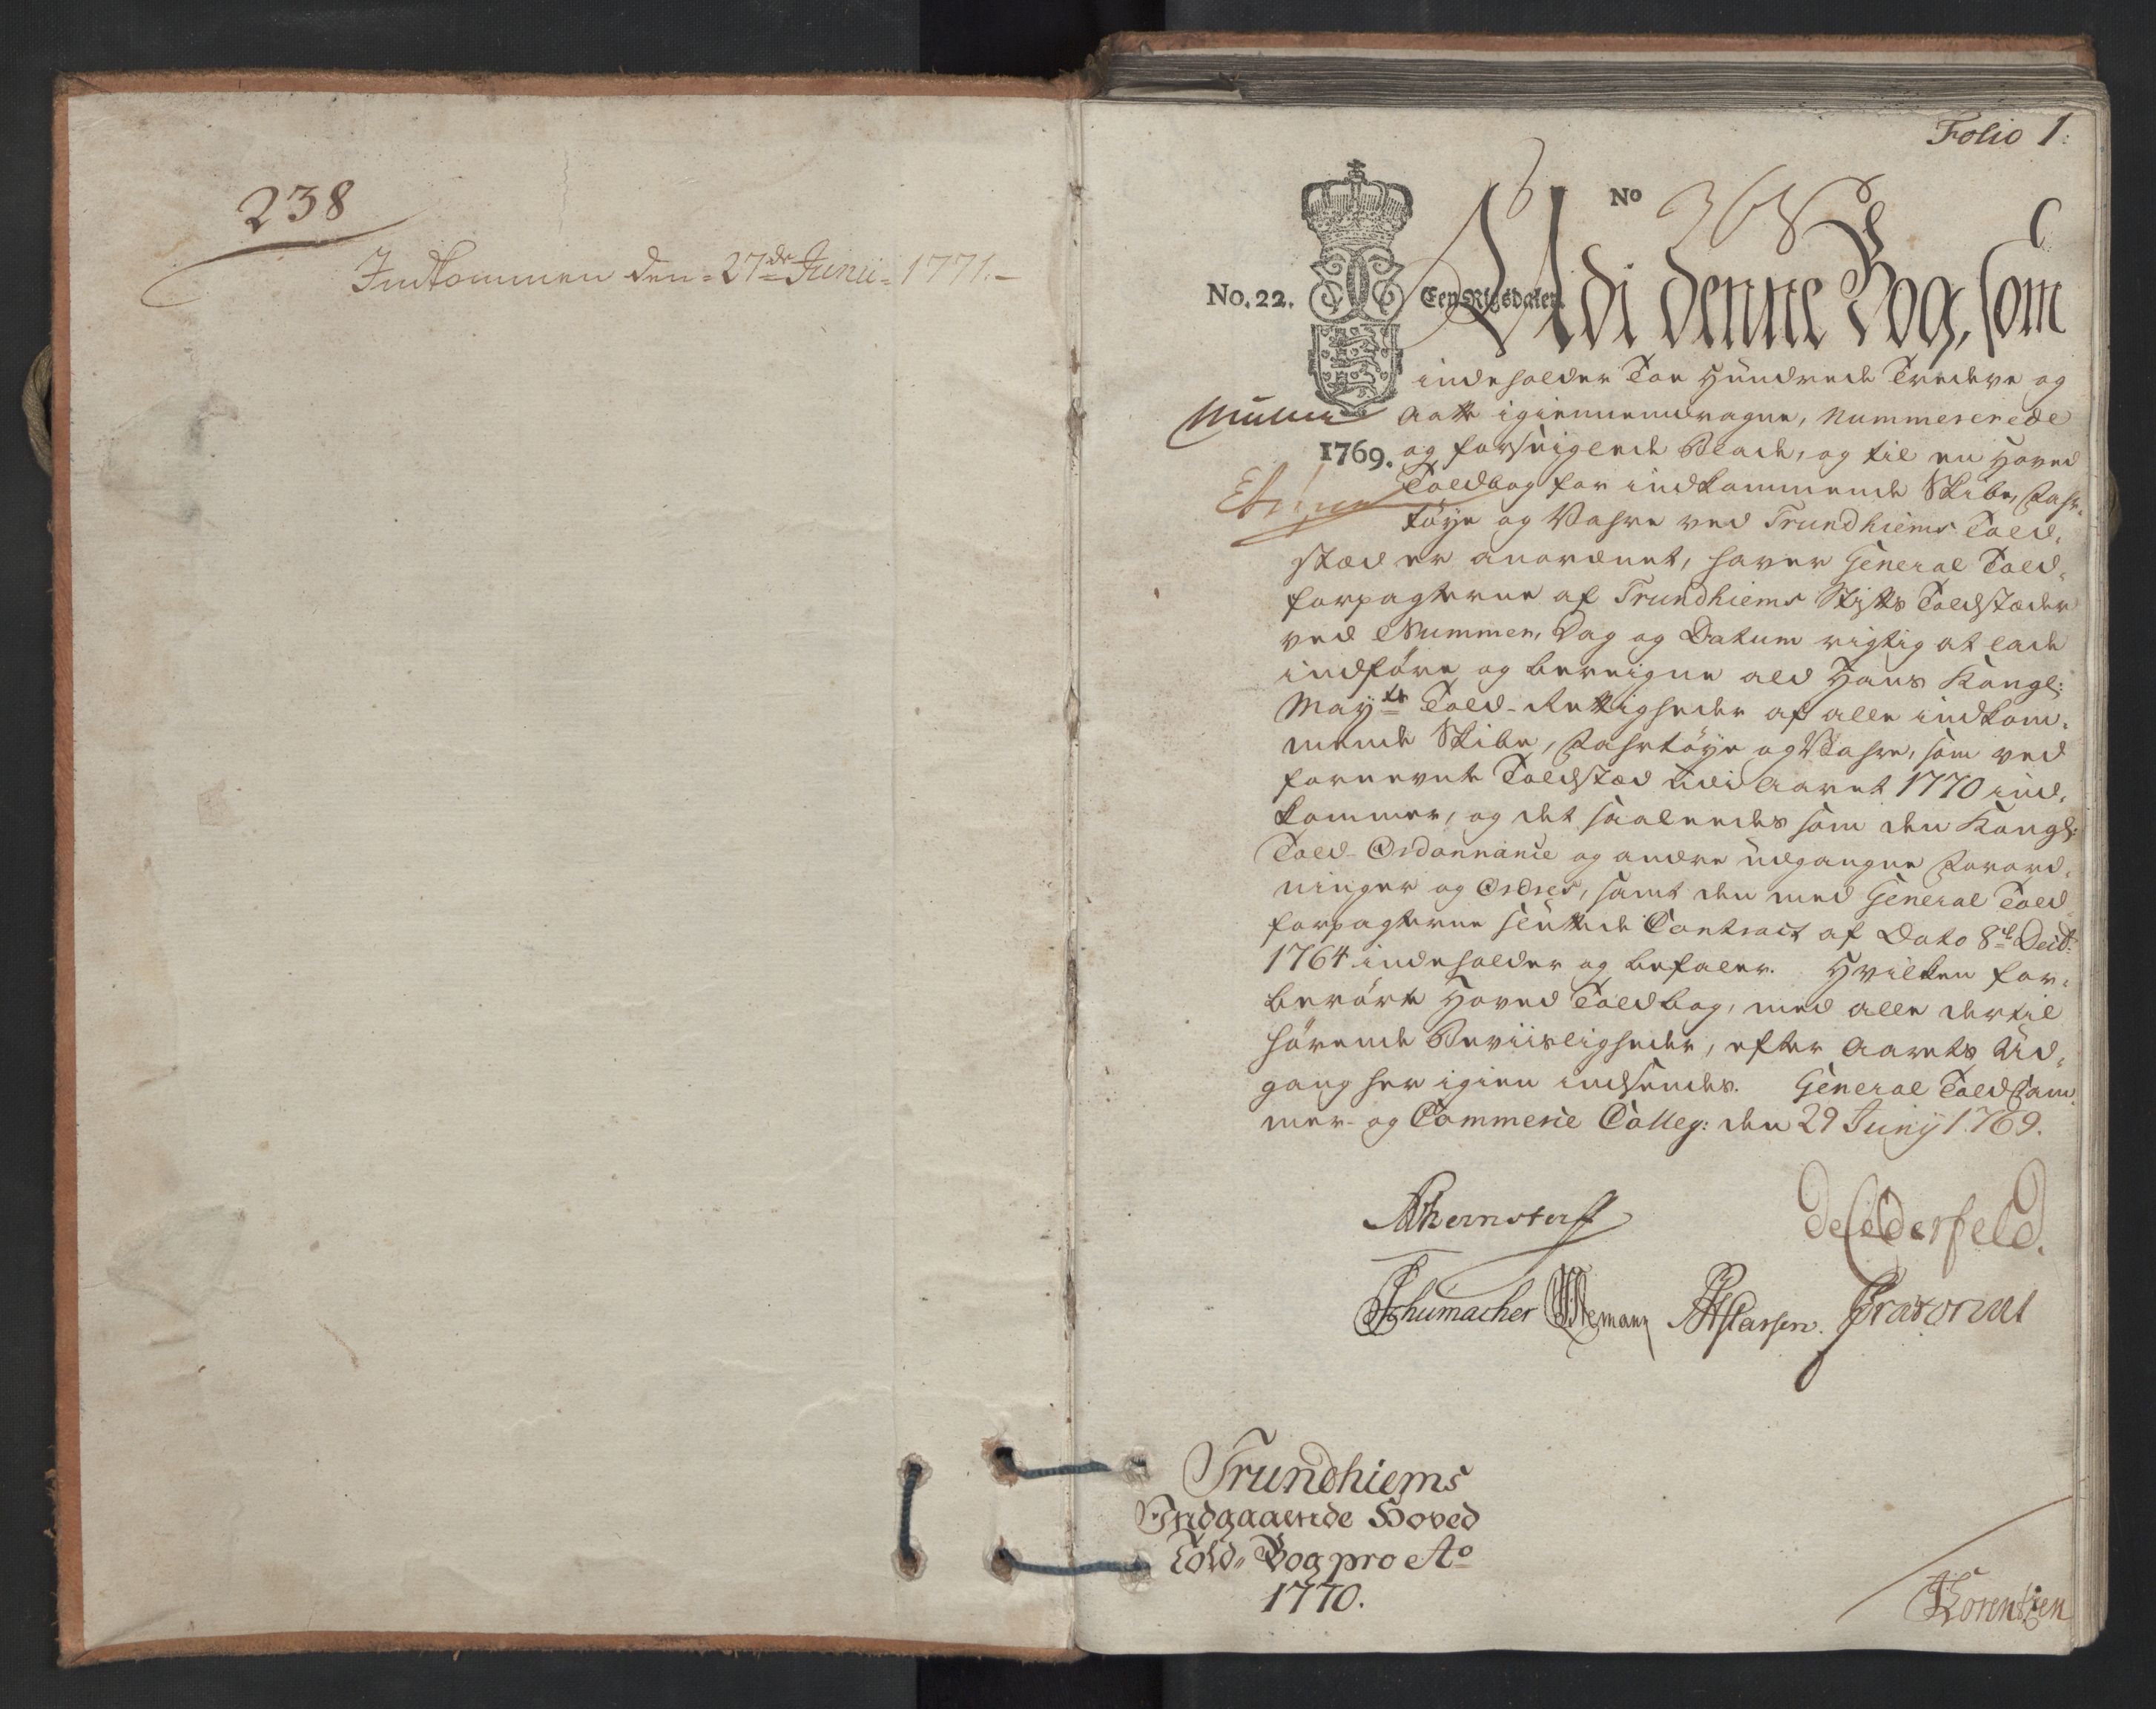 238
Indkommen den 27de Junii 1771.
Folio 1:
No 368
No. 22.
Een Rigsdaler.
Udi denne Bog, som
indeholder Toe Hundrede Tredeve og
Aatte igiennemdragne, Nummererede
1769.
og forseiglede Blade, og til en Hoved
Toldbog for indkommende Skibe, Fahr-
töye og Vahre ved Trundhiems Told-
stæd er anordnet, haver General Told-
forpagterne af Trundhiems Stifts Toldstæder
ved Nummer, Dag og Datum rigtig at lade
indföre og beregne ald Hans Kongl:
Mayts Told-Rettigheder af alle indkom-
mende Skibe, Fahrtöye og Vahre, som ved
fornevnte Toldstæd udi Aaret 1770 ind-
kommer, og det saaledes som den Kongl:
Told-Ordonnance og andre udgangne Forord-
ninger og Ordres, samt den med General Told-
forpagterne sluttede Contract af Dato 8de Decbr:
1764 indeholder og befaler. Hvilken for-
berörte Hoved Toldbog, med alle dertil
hörende Beviisligheder, efter Aarets Ud-
gang her igien indsendes. General Toldkam-
mer- og Commerce Colleg: den 29 Junij 1769.
Schumacher
Prætorius
Trundhiems
Indgaaende Hoved
Told-Bog pro Ao
1770.
Lorentzen